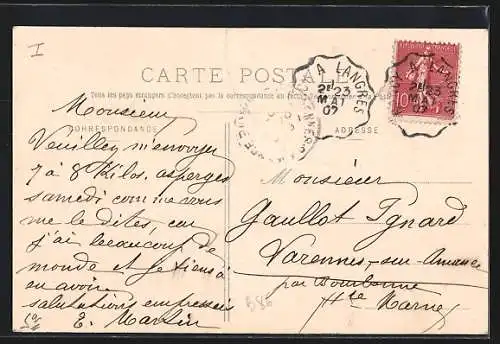 I
CARTE POSTALE
Tous les pays étrangers n'acceptent pas la correspondance au
CORRESPONDANCE
ADRESSE
A LANGRES
2E 23
MAI
07
A LANGRES
2E 23
MAI
10
Monsieur
Veuillez m'envoyer
7 à 8 Kilos, asperges
samedi comme vous
me le dites, car
j'ai beaucoup de
monde et je tiens à
en avoir.
salutations empressées
E. Martin
Monsieur
Gaullot Ignard
Varennes-sur-Amance
par Bourbonne
Hte Marne
B86